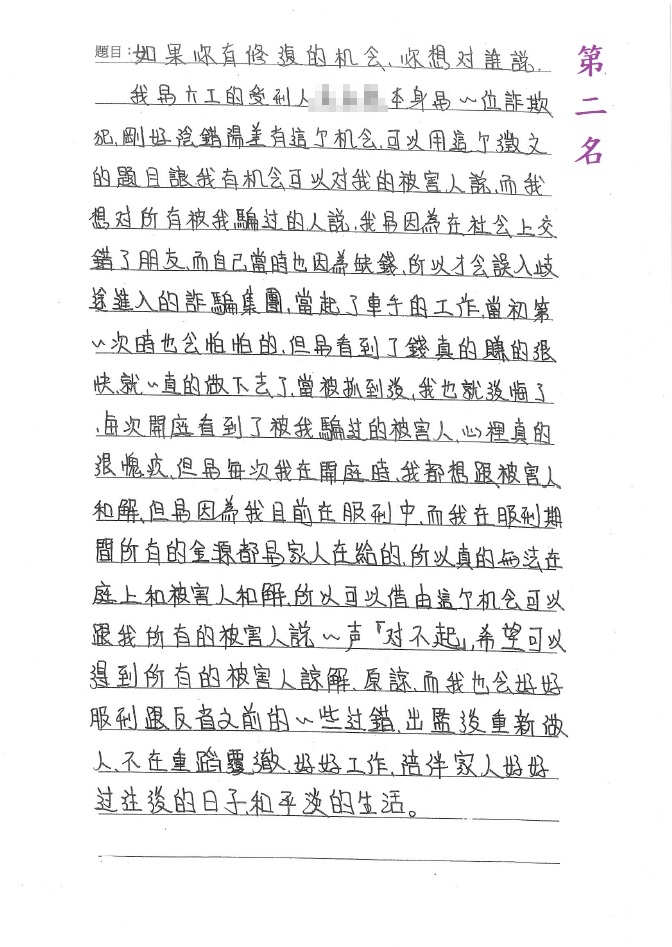 第二名
題目：如果你有修復的机会、你想对誰說.
我是六工的受刑人 本身是一位詐欺
犯,剛好陰錯陽差有這个机会,可以用這个徵文
的題目讓我有机会可以对我的被害人說,而我
想对所有被我騙过的人說,我是因為在社会上交
錯了朋友,而自己當時也因為缺錢,所以才会誤入歧
途進入的詐騙集團,當起了車手的工作,當初第
一次時也会怕怕的,但是看到了錢真的賺的很
快,就一直的做下去了,當被抓到後,我也就後悔了
,每次開庭看到了被我騙过的被害人,心裡真的
很愧疚,但是每次我在開庭時,我都想跟被害人
和解,但是因為我目前在服刑中,而我在服刑期
間所有的金源都是家人在給的,所以真的無法在
庭上和被害人和解,所以可以借由這个机会可以
跟我所有的被害人說一声「对不起」,希望可以
得到所有的被害人諒解、原諒,而我也会好好
服刑跟反省文前的一些过錯,出監後重新做
人,不在重蹈覆澈,好好工作,陪伴家人好好
过往後的日子,和平淡的生活。